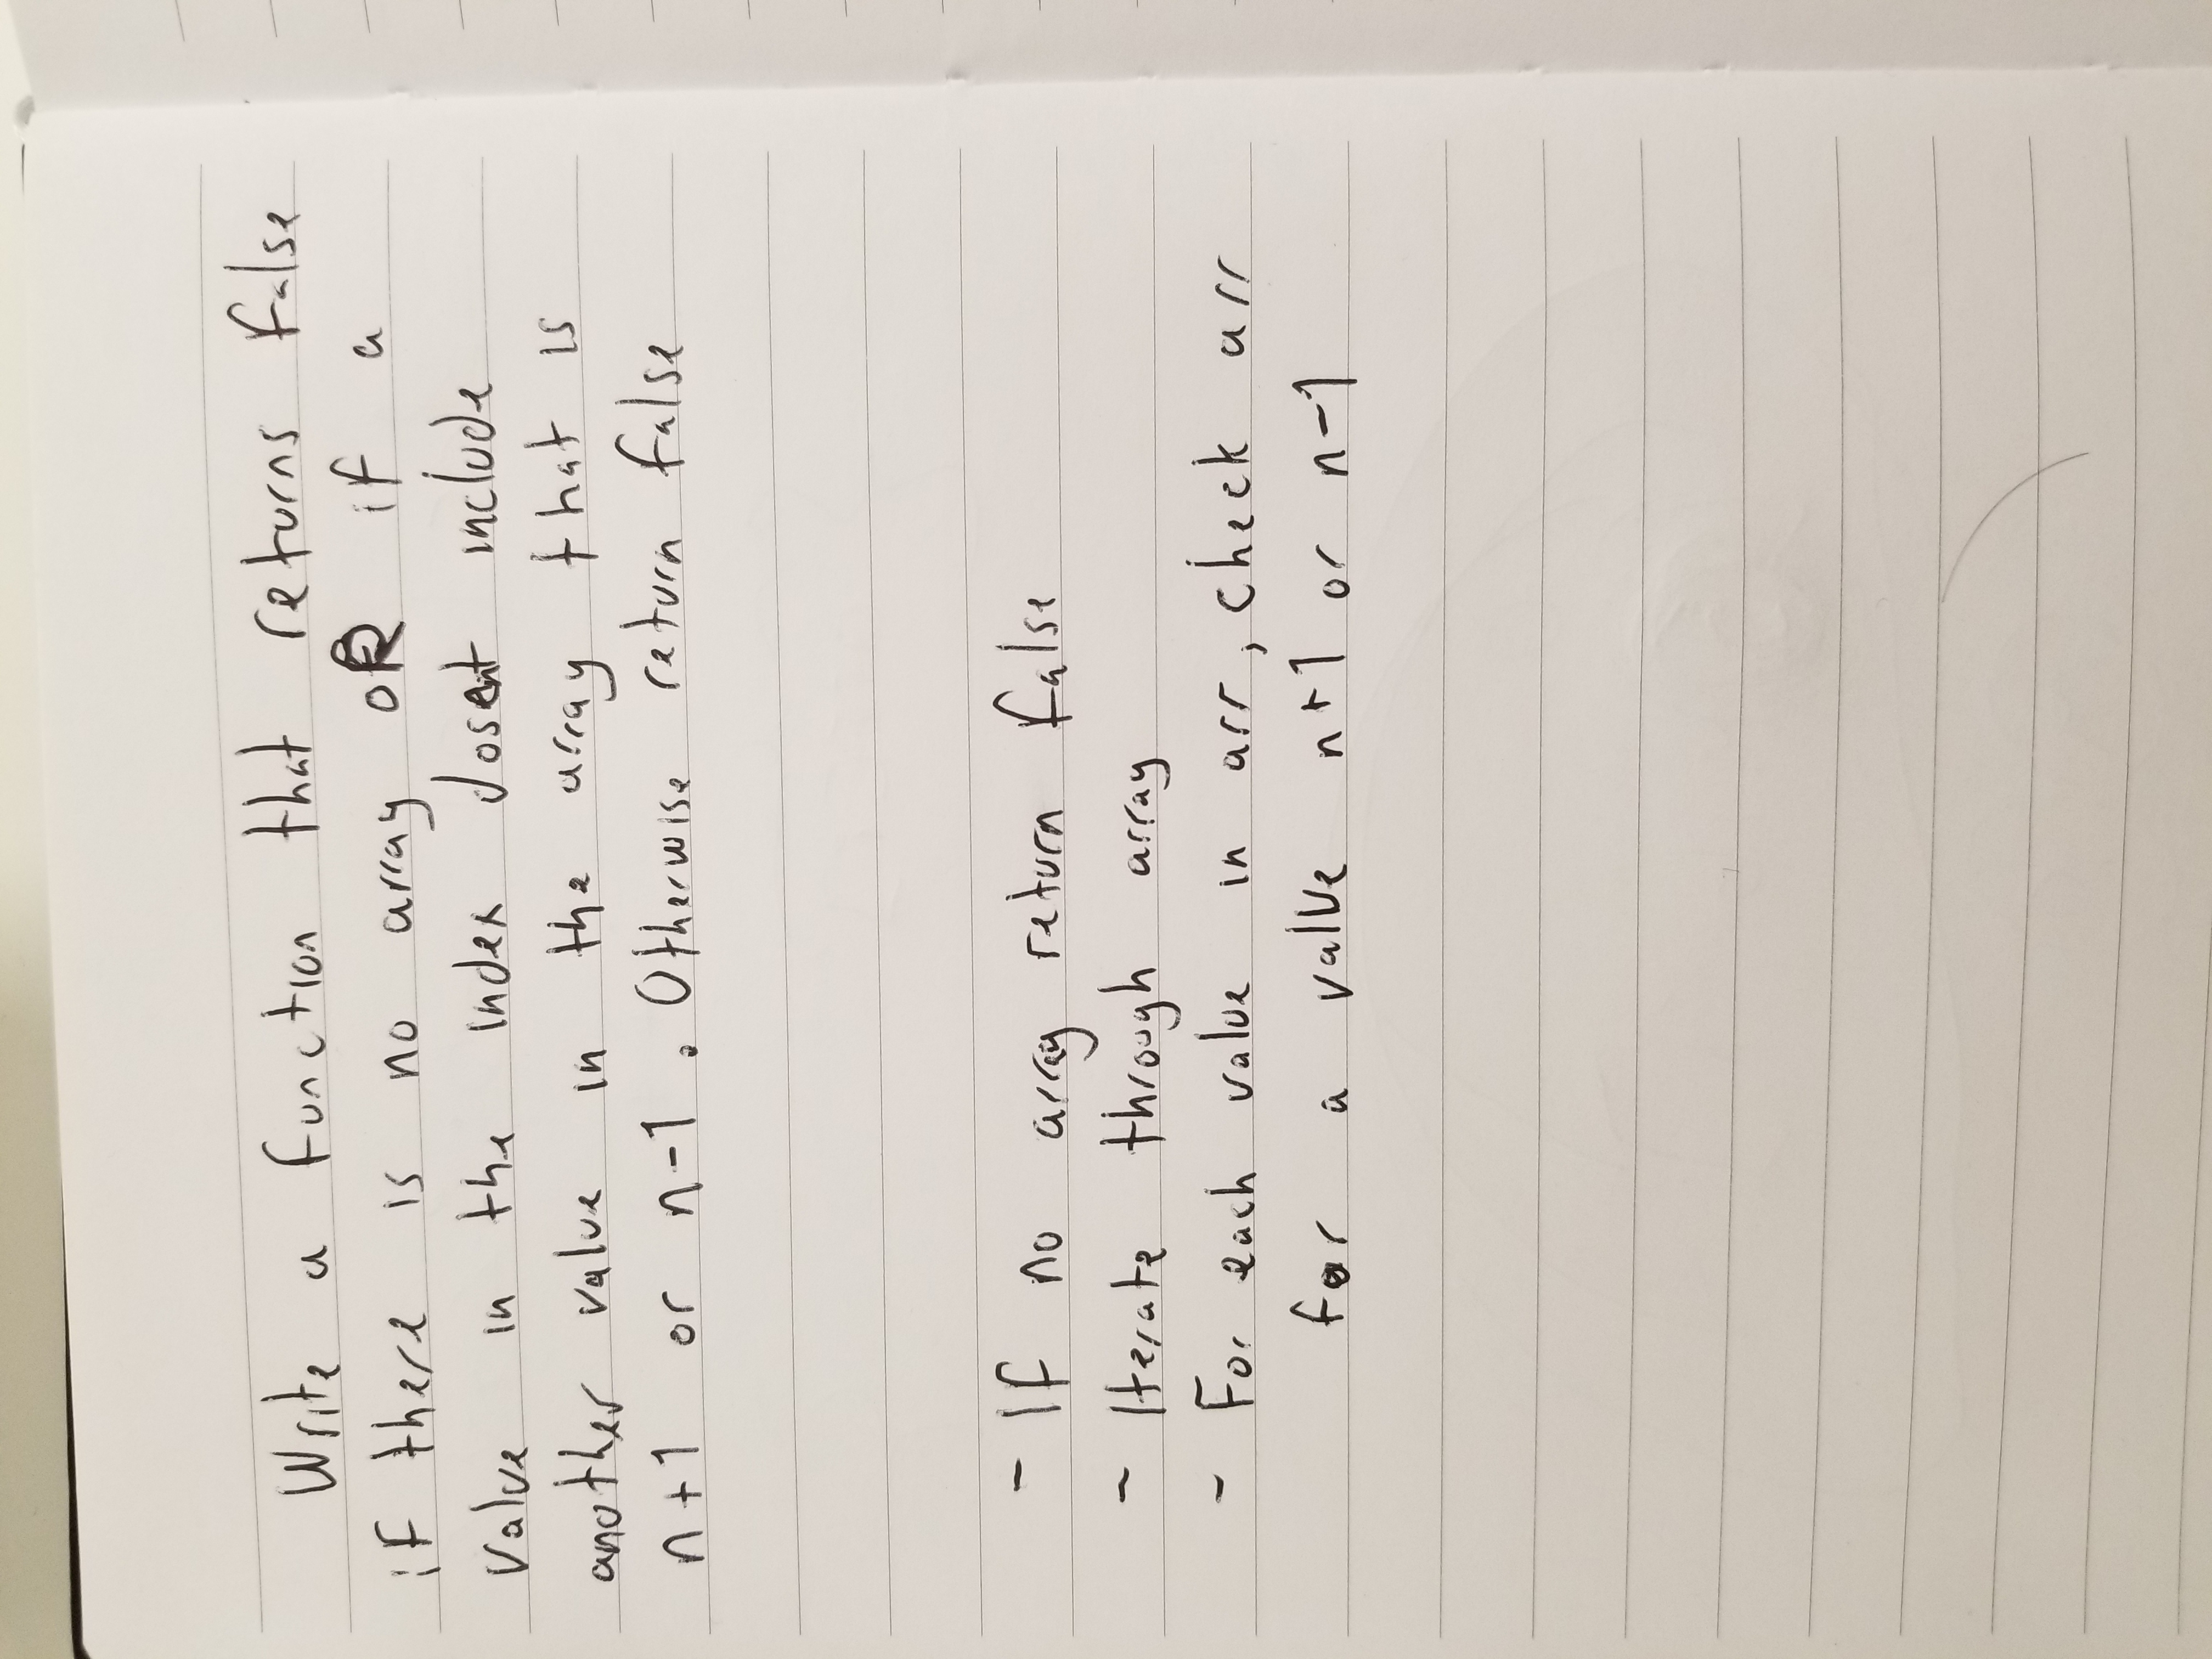 Write a function that returns false
if there is no array oR if a
value in the index dosent include
another value in the array that is
n+1 or n-1. Otherwise return false
- If no array return false
- Iterate through array
- For each value in arr, check arr
for a value n+1 or n-1